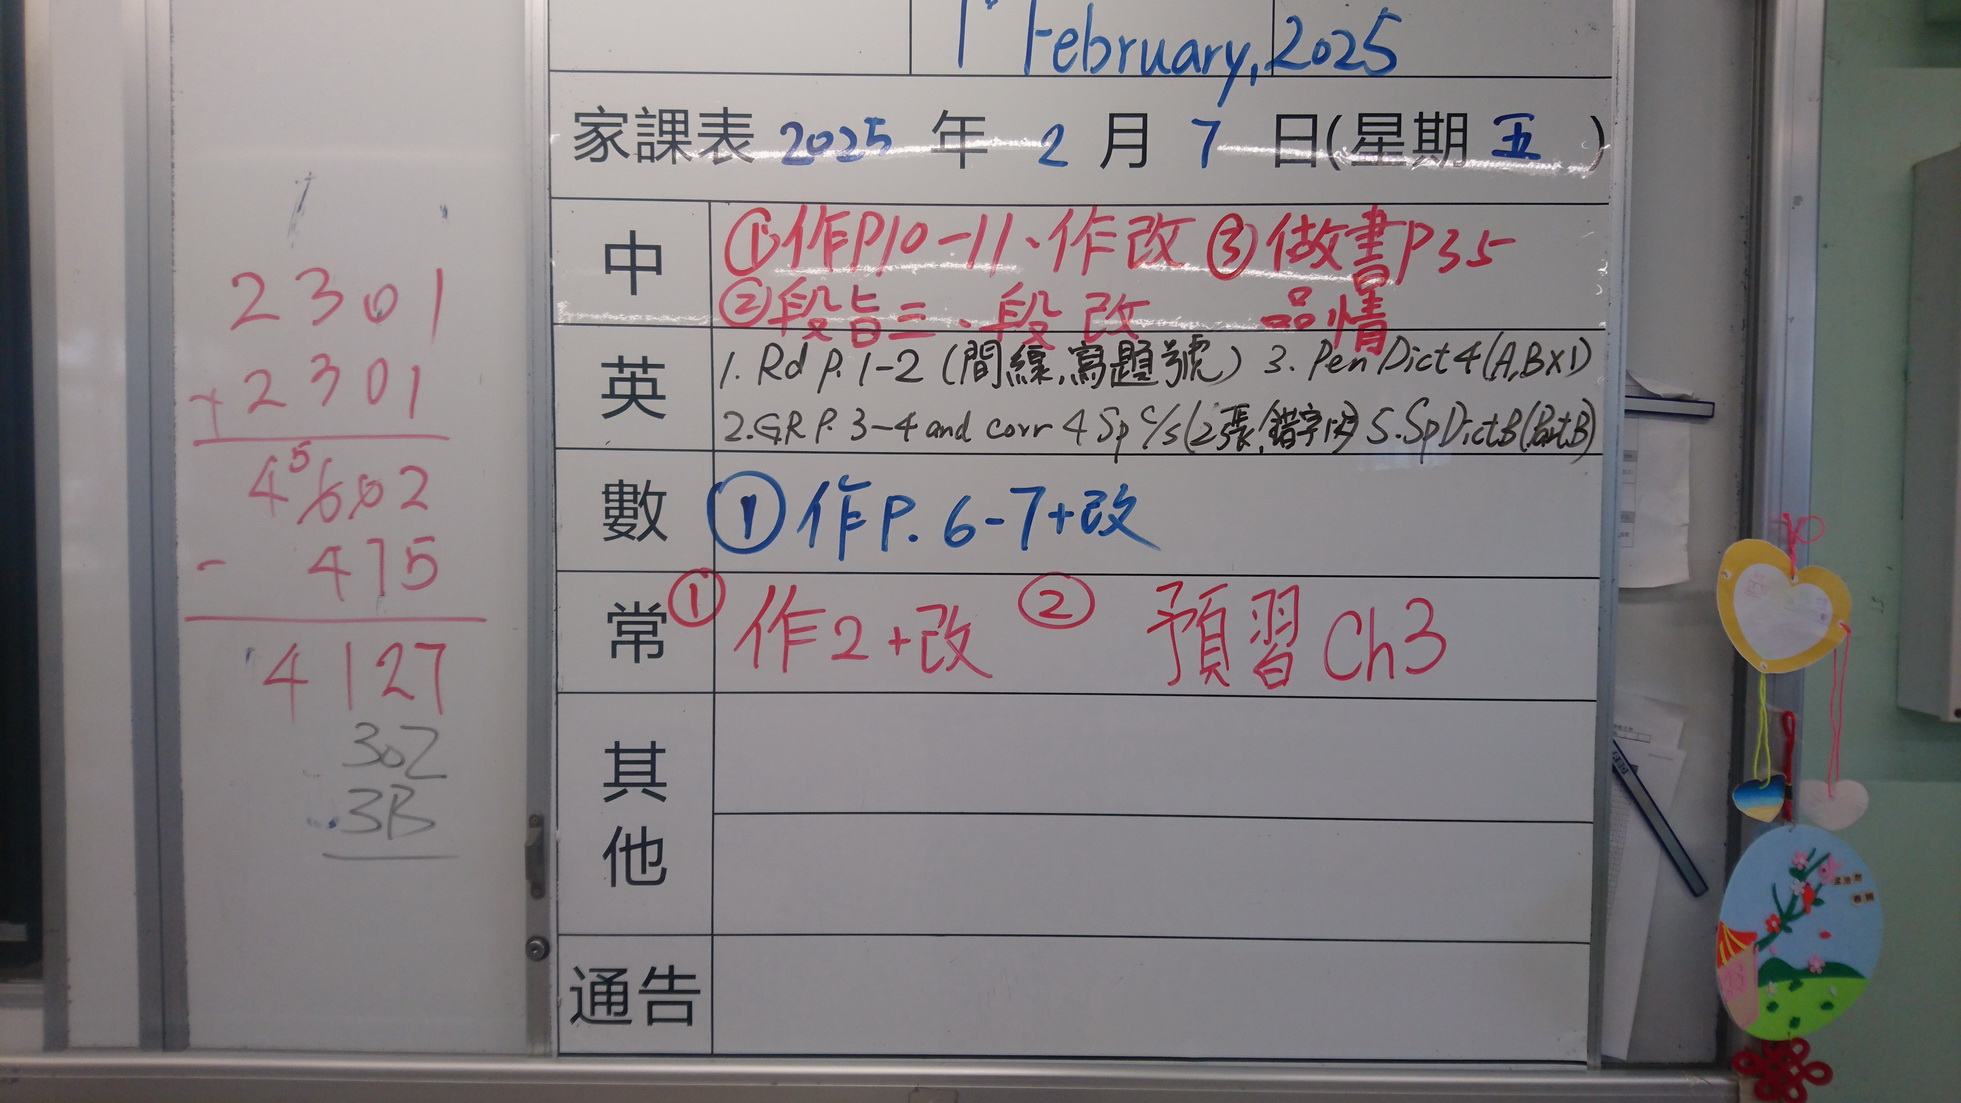 2301
+2301
4602
5
- 475
4127
302
3B
February, 2025
家課表 2025 年 2 月 7 日(星期 五 )
中
①作P10-11、作改 ③做書P35
②段旨三、段改 品情
英
1. Rd P. 1-2 (間線,寫題號) 3. Pen Dict 4 (A,Bx1)
2. GR P. 3-4 and corr 4 Sp c/s (2張, 5. Sp Dict B (Part B)
數
① 作P. 6-7+改
常
① 作2+改 ② 預習Ch3
其他
通告